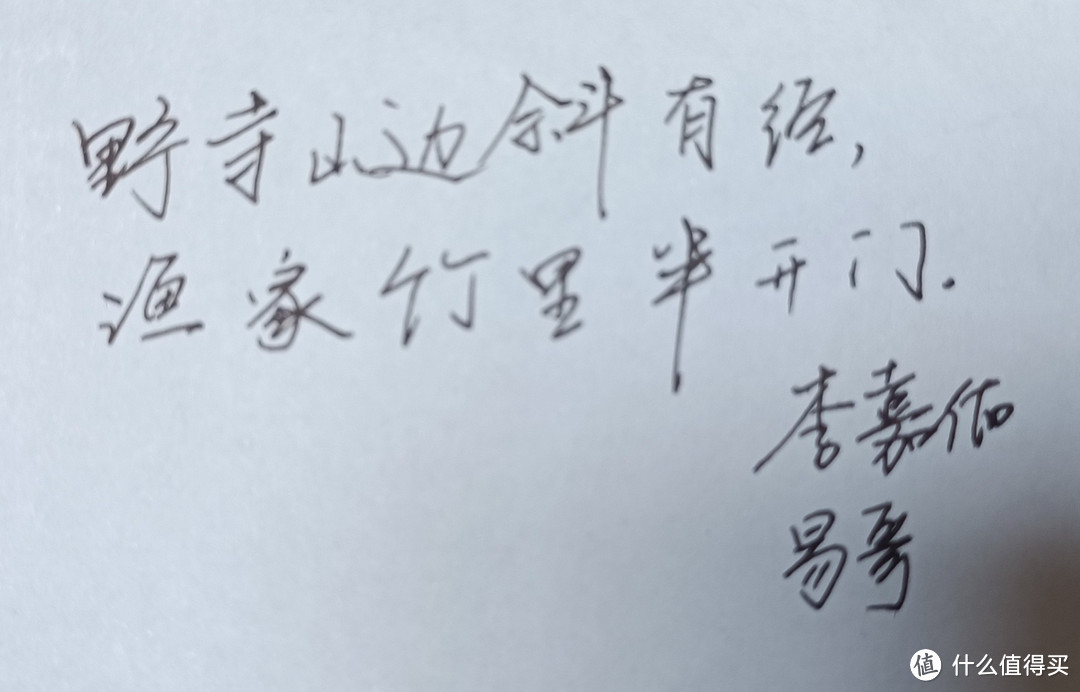 野寺山边斜有经，
渔家竹里半开门.
李嘉佑
易哥
值 什么值得买